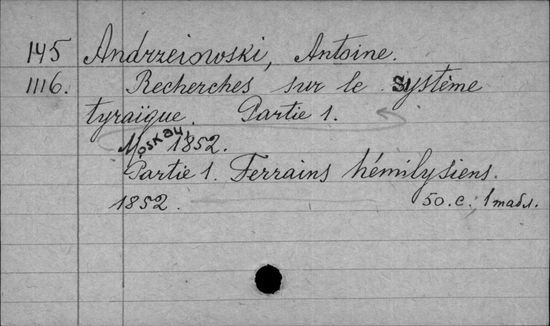 145 Andrzeiowski, Antoine.
1116. Recherches sur le système
tyraïque. Partie 1.
Moskau, 1852.
Partie 1. Terrains hémilysiens.
1852. 50. c., 1 табл.